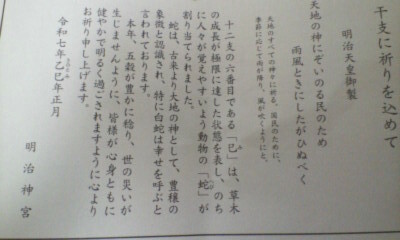 干支に祈りを込めて
明治天皇御製
天地の神にぞいのる民のため
雨風ときにしたがひぬべく
天地のすべての神々に祈る、国民のために、
季節に応じて雨が降り、風が吹くようにと。
十二支の六番目である「巳」は、草木
の成長が極限に達した状態を表し、のち
に人々が覚えやすいよう動物の「蛇」が
割り当てられました。
蛇は、古来より大地の神として、豊穣の
象徴と認識され、特に白蛇は幸せを呼ぶと
言われております。
本年、五穀が豊かに稔り、世の災いが
生じませんように、皆様が心身ともに
健やかで明るく過ごされますように心より
お祈り申し上げます。
令和七年乙巳年正月
明治神宮